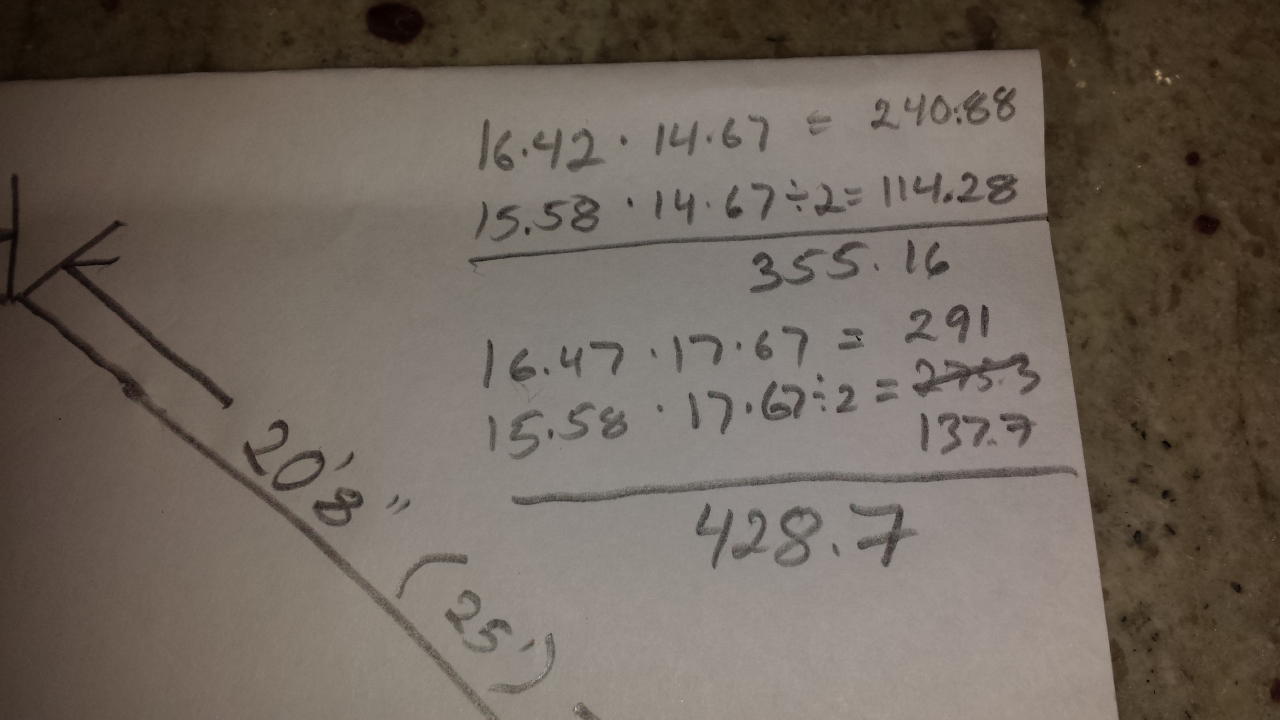 16.42 · 14.67 = 240.88
15.58 · 14.67 ÷ 2 = 114.28
355.16
16.47 · 17.67 = 291
15.58 · 17.67 ÷ 2 = 275.3
137.7
428.7
20'8"
(25')